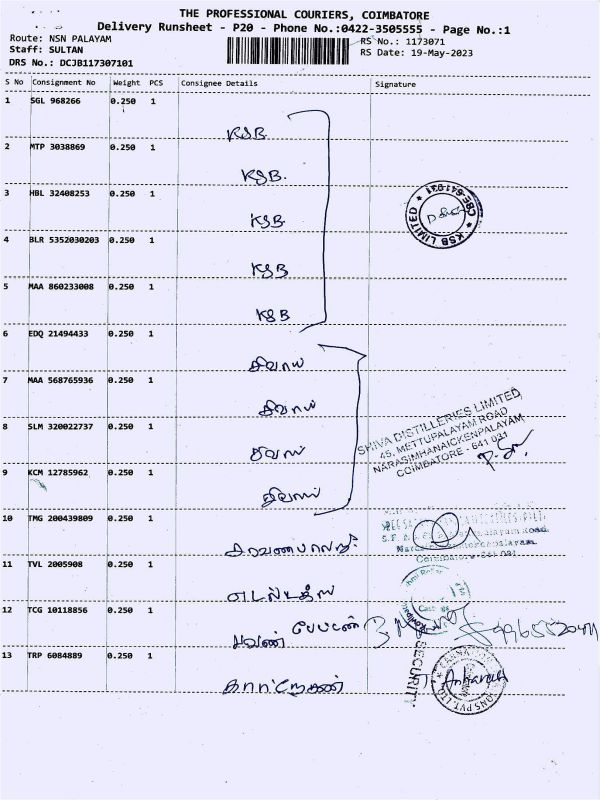 THE PROFESSIONAL COURIERS, COIMBATORE
Delivery Runsheet - P20 - Phone No.:0422-3505555 - Page No.:1
Route: NSN PALAYAM
RS No.: 1173071
Staff: SULTAN
RS Date: 19-May-2023
DRS No.: DCJB117307101
S No Consignment No Weight PCS Consignee Details Signature
1 SGL 968266 0.250 1
KSB
2 MTP 3038869 0.250 1
KSB.
3 HBL 32408253 0.250 1
KSB
KSB LIMITED * CBE-641-031 *
4 BLR 5352030203 0.250 1
KSB
5 MAA 860233008 0.250 1
KSB
6 EDQ 21494433 0.250 1
சிவாஸ்
7 MAA 568765936 0.250 1
சிவாஸ்
8 SLM 320022737 0.250 1
சிவாஸ்
SHIVA DISTILLERIES LIMITED,
45, METTUPALAYAM ROAD
NARASIMHANAICKENPALAYAM
COIMBATORE - 641 031
9 KCM 12785962 0.250 1
சிவாஸ்
10 TMG 200439809 0.250 1
Coimbatore - 641 031
11 TVL 2005908 0.250 1
12 TCG 10118856 0.250 1
13 TRP 6084889 0.250 1
SECURITY